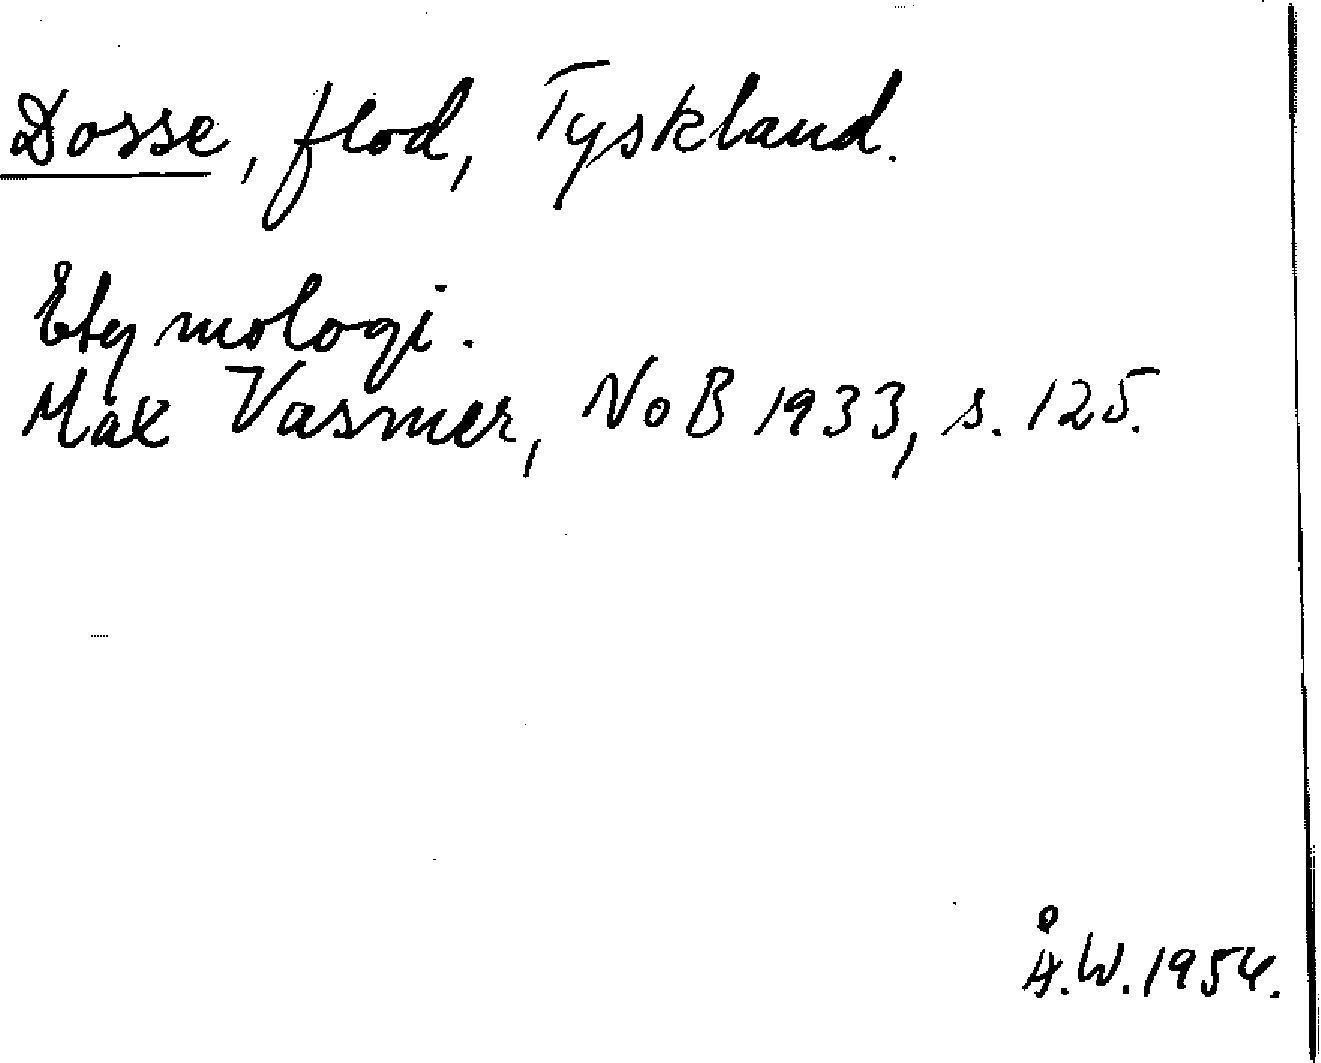 Dosse, flod, Tyskland.
Etymologi.
Max Vasmer, NoB 1933, s. 125.
Å.W. 1954.